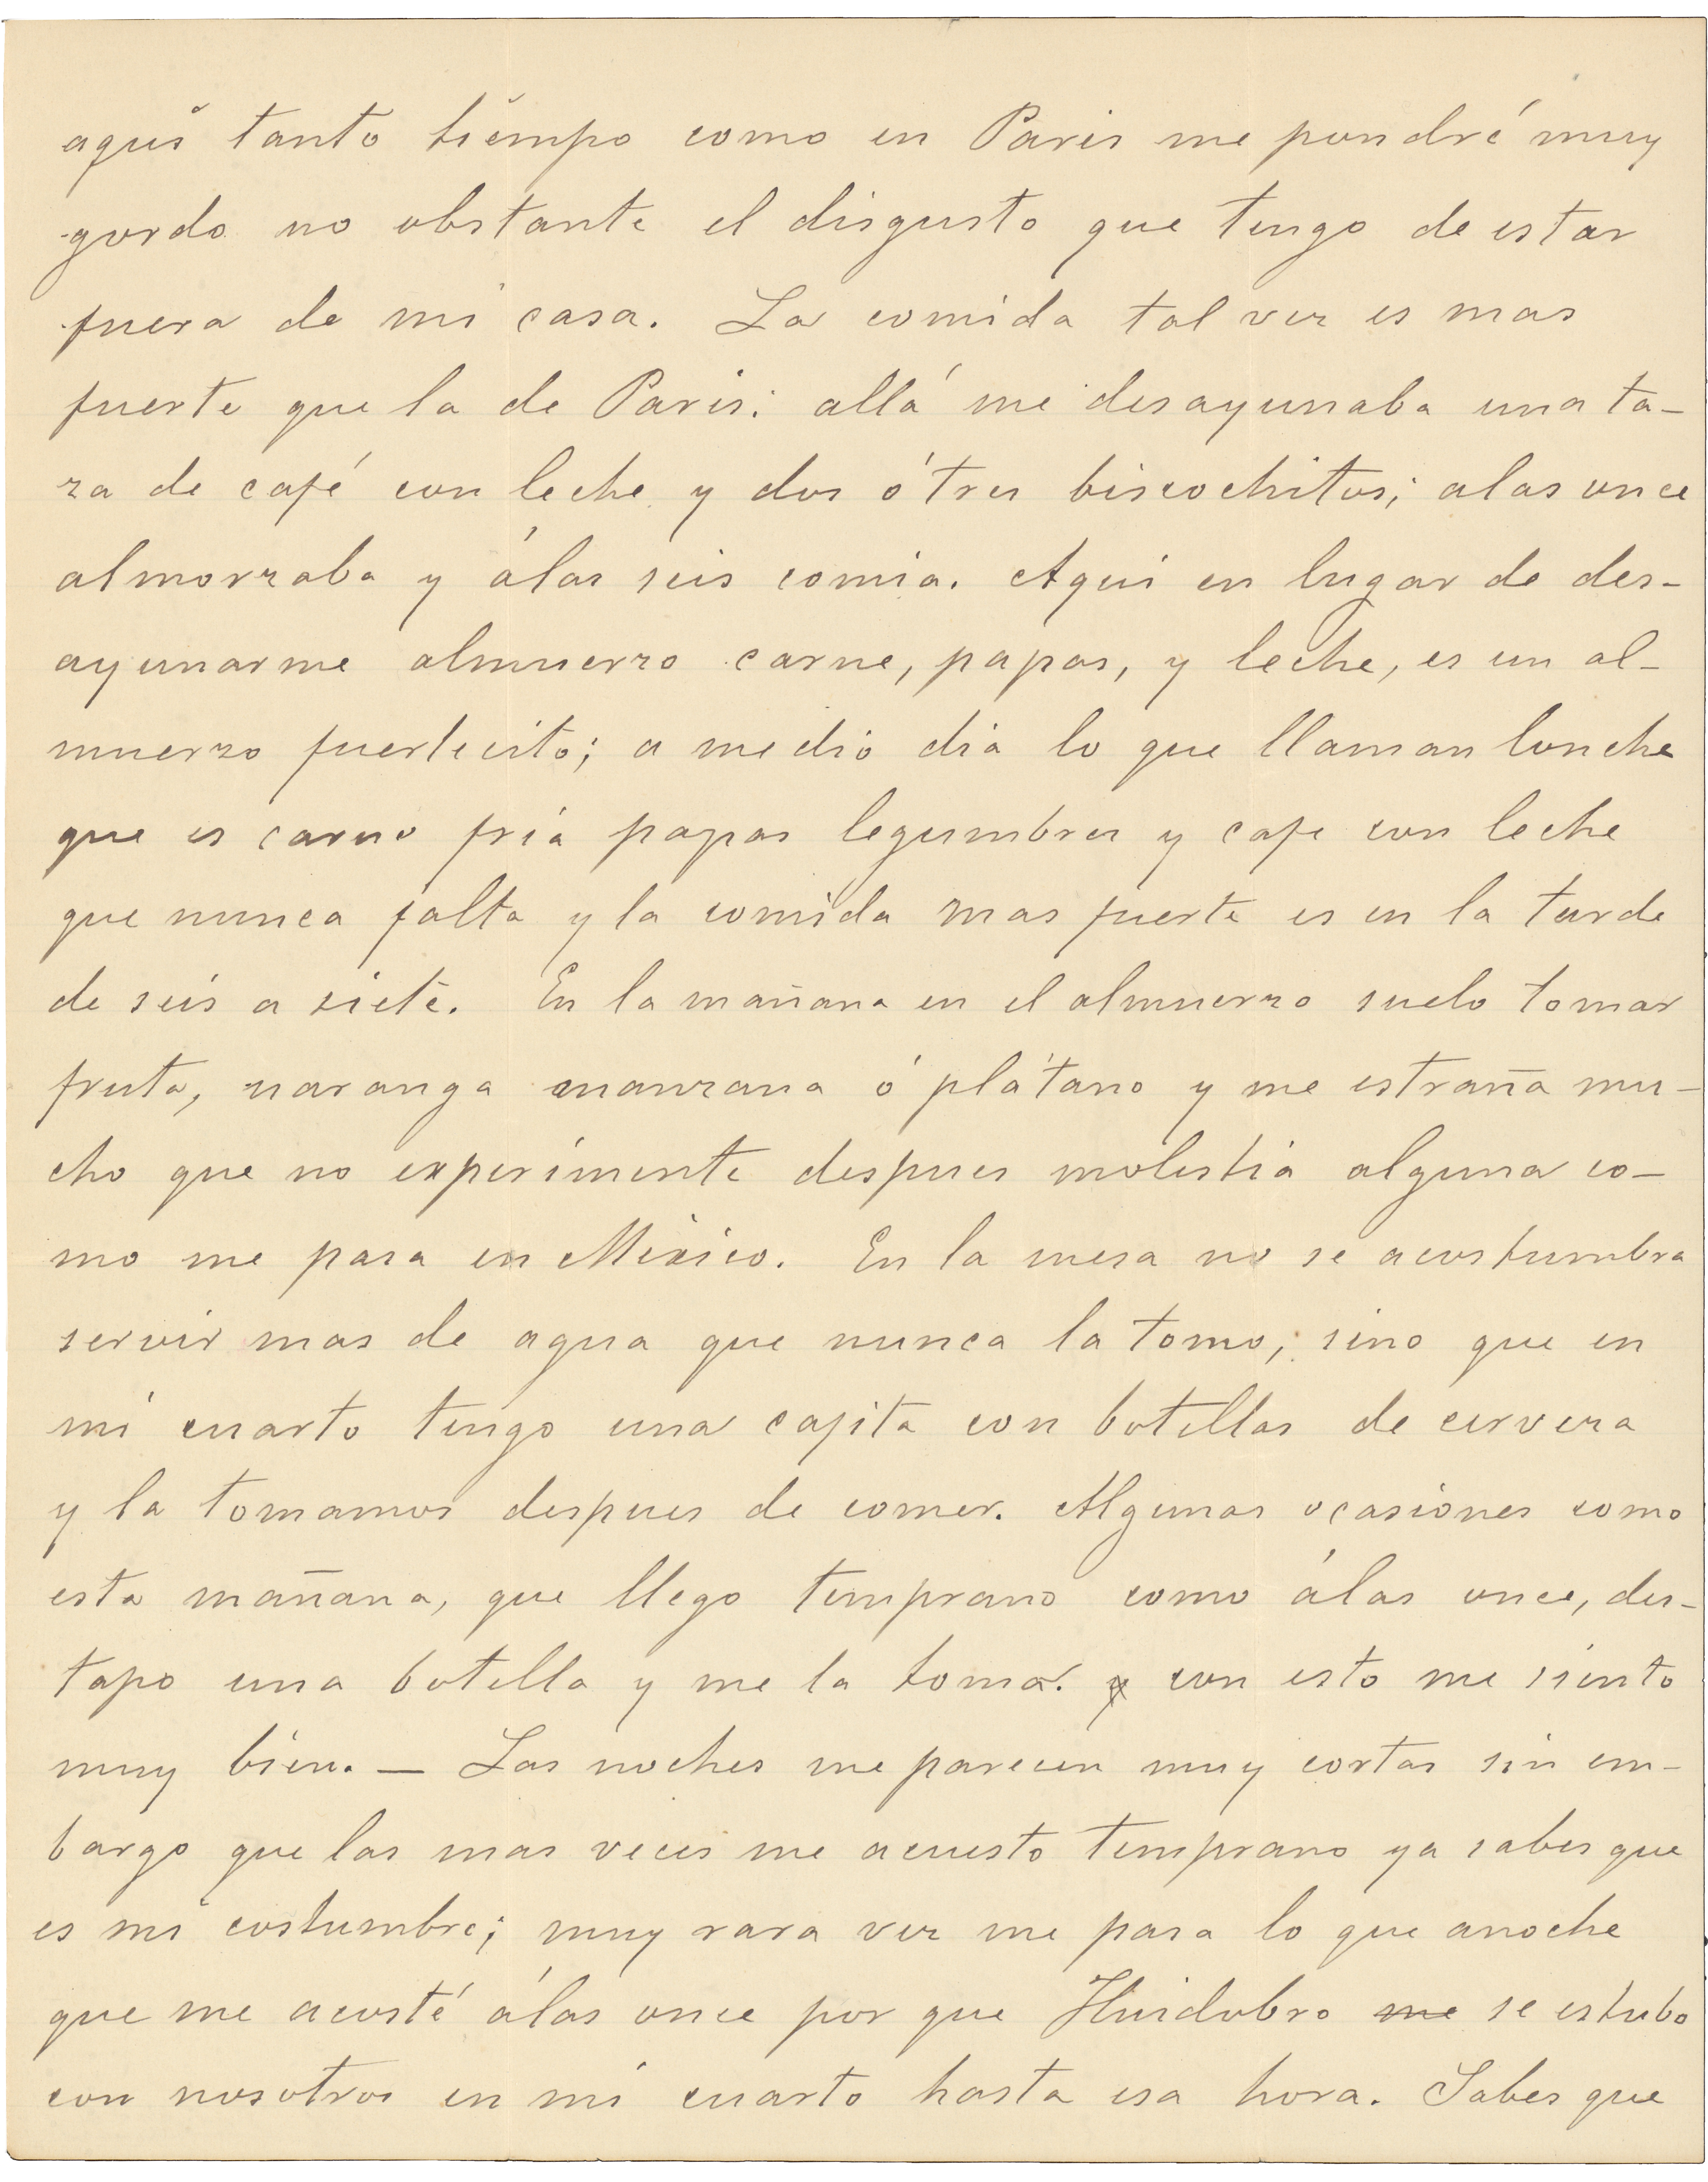 aqui tanto tiempo como en Paris me pondré muy
gordo no obstante el disgusto que tengo de estar
fuera de mi casa. La comida tal vez es mas
fuerte que la de Paris: allá me desayunaba una ta-
za de café con leche y dos ó tres biscochitos; a las once
almorzaba y á las seis comia. Aqui en lugar de des-
ayunarme almuerzo carne, papas, y leche, es un al-
muerzo fuertecito; a medio dia lo que llaman lonche
que es carne fria papas legumbres y cafe con leche
que nunca falta y la comida mas fuerte es en la tarde
de seis a siete. En la mañana en el almuerzo suelo tomar
fruta, naranga manzana ó plátano y me estraña mu-
cho que no experimente despues molestia alguna co-
mo me pasa en México. En la mesa no se acostumbra
servir mas de agua que nunca la tomo, sino que en
mi cuarto tengo una cajita con botellas de cerveza
y la tomamos despues de comer. Algunas ocasiones como
esta mañana, que llego temprano como á las once, des-
tapo una botella y me la tomo. y con esto me siento
muy bien. — Las noches me parecen muy cortas sin em-
bargo que las mas veces me acuesto temprano ya sabes que
es mi costumbre; muy rara vez me pasa lo que anoche
que me acosté á las once por que Huidobro me se estubo
con nosotros en mi cuarto hasta esa hora. Sabes que